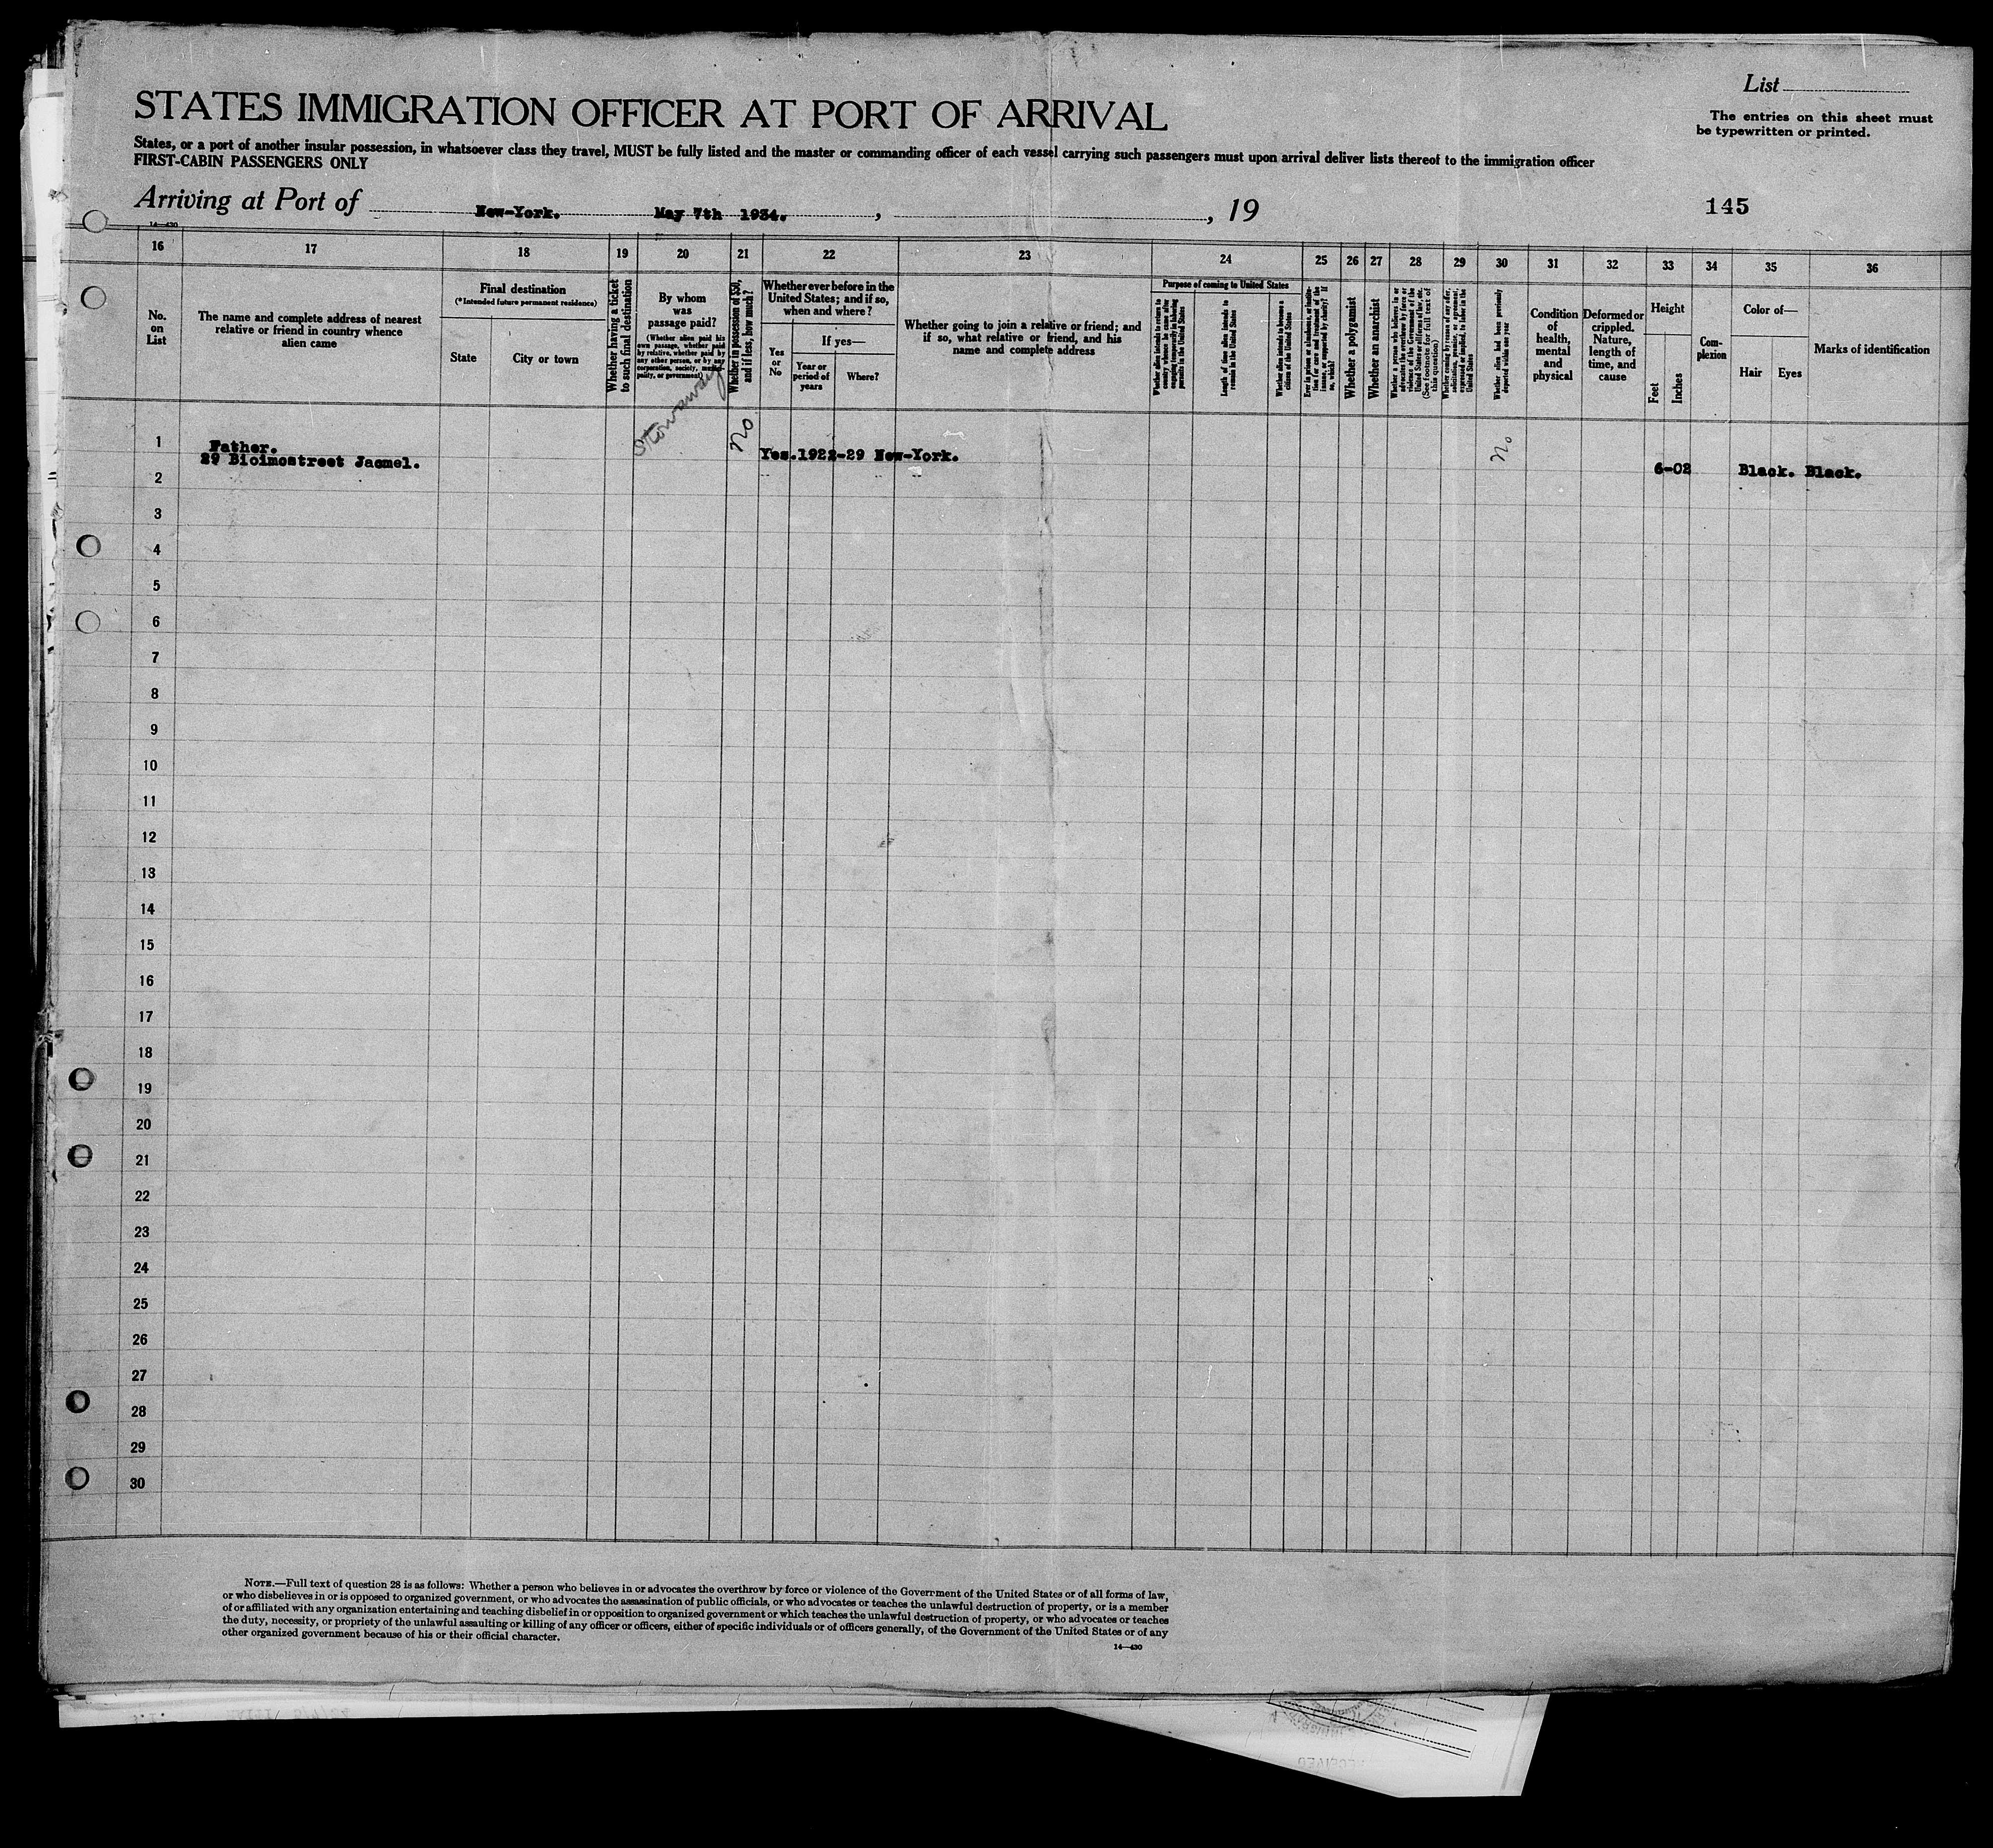 List
STATES IMMIGRATION OFFICER AT PORT OF ARRIVAL
The entries on this sheet must
be typewritten or printed.
States, or a port of another insular possession, in whatsoever class they travel, MUST be fully listed and the master or commanding officer of each vessel carrying such passengers must upon arrival deliver lists thereof to the immigration officer
FIRST-CABIN PASSENGERS ONLY
Arriving at Port of New-York. May 7th 1934. , , 19
145
14—430
16 17 18 19 20 21 22 23 24 25 26 27 28 29 30 31 32 33 34 35 36
No.
on
List
The name and complete address of nearest
relative or friend in country whence
alien came
Final destination
(*Intended future permanent residence)
State
City or town
Whether having a ticket
to such final destination
By whom
was
passage paid?
(Whether alien paid his
own passage, whether paid
by relative, whether paid by
any other person, or by any
corporation, society, munici-
pality, or government)
Whether in possession of $50,
and if less, how much?
Whether ever before in the
United States; and if so,
when and where?
Yes
or
No
If yes—
Year or
period of
years
Where?
Whether going to join a relative or friend; and
if so, what relative or friend, and his
name and complete address
Purpose of coming to United States
Whether alien intends to return to
country whence he came after
engaging temporarily in laboring
pursuits in the United States
Length of time alien intends to
remain in the United States
Whether alien intends to become a
citizen of the United States
Ever in prison or almshouse, or institu-
tion for care and treatment of the
insane, or supported by charity? If
so, which?
Whether a polygamist
Whether an anarchist
Whether a person who believes in or
advocates the overthrow by force or
violence of the Government of the
United States or all forms of law, etc.
(See footnote for full text of
this question)
Whether coming by reason of any offer,
solicitation, promise, or agreement,
expressed or implied, to labor in the
United States
Whether alien had been previously
deported within one year
Condition
of
health,
mental
and
physical
Deformed or
crippled.
Nature,
length of
time, and
cause
Height
Feet
Inches
Com-
plexion
Color of—
Hair
Eyes
Marks of identification
1
Father.
29 Bicimostreet Jacmel.
Stowaway
No
Yes. 1922-29 New-York.
No
6-02
Black. Black.
2
3
4
5
6
7
8
9
10
11
12
13
14
15
16
17
18
19
20
21
22
23
24
25
26
27
28
29
30
NOTE.—Full text of question 28 is as follows: Whether a person who believes in or advocates the overthrow by force or violence of the Government of the United States or of all forms of law,
or who disbelieves in or is opposed to organized government, or who advocates the assassination of public officials, or who advocates or teaches the unlawful destruction of property, or is a member
of or affiliated with any organization entertaining and teaching disbelief in or opposition to organized government or which teaches the unlawful destruction of property, or who advocates or teaches
the duty, necessity, or propriety of the unlawful assaulting or killing of any officer or officers, either of specific individuals or of officers generally, of the Government of the United States or of any
other organized government because of his or their official character.
14—430